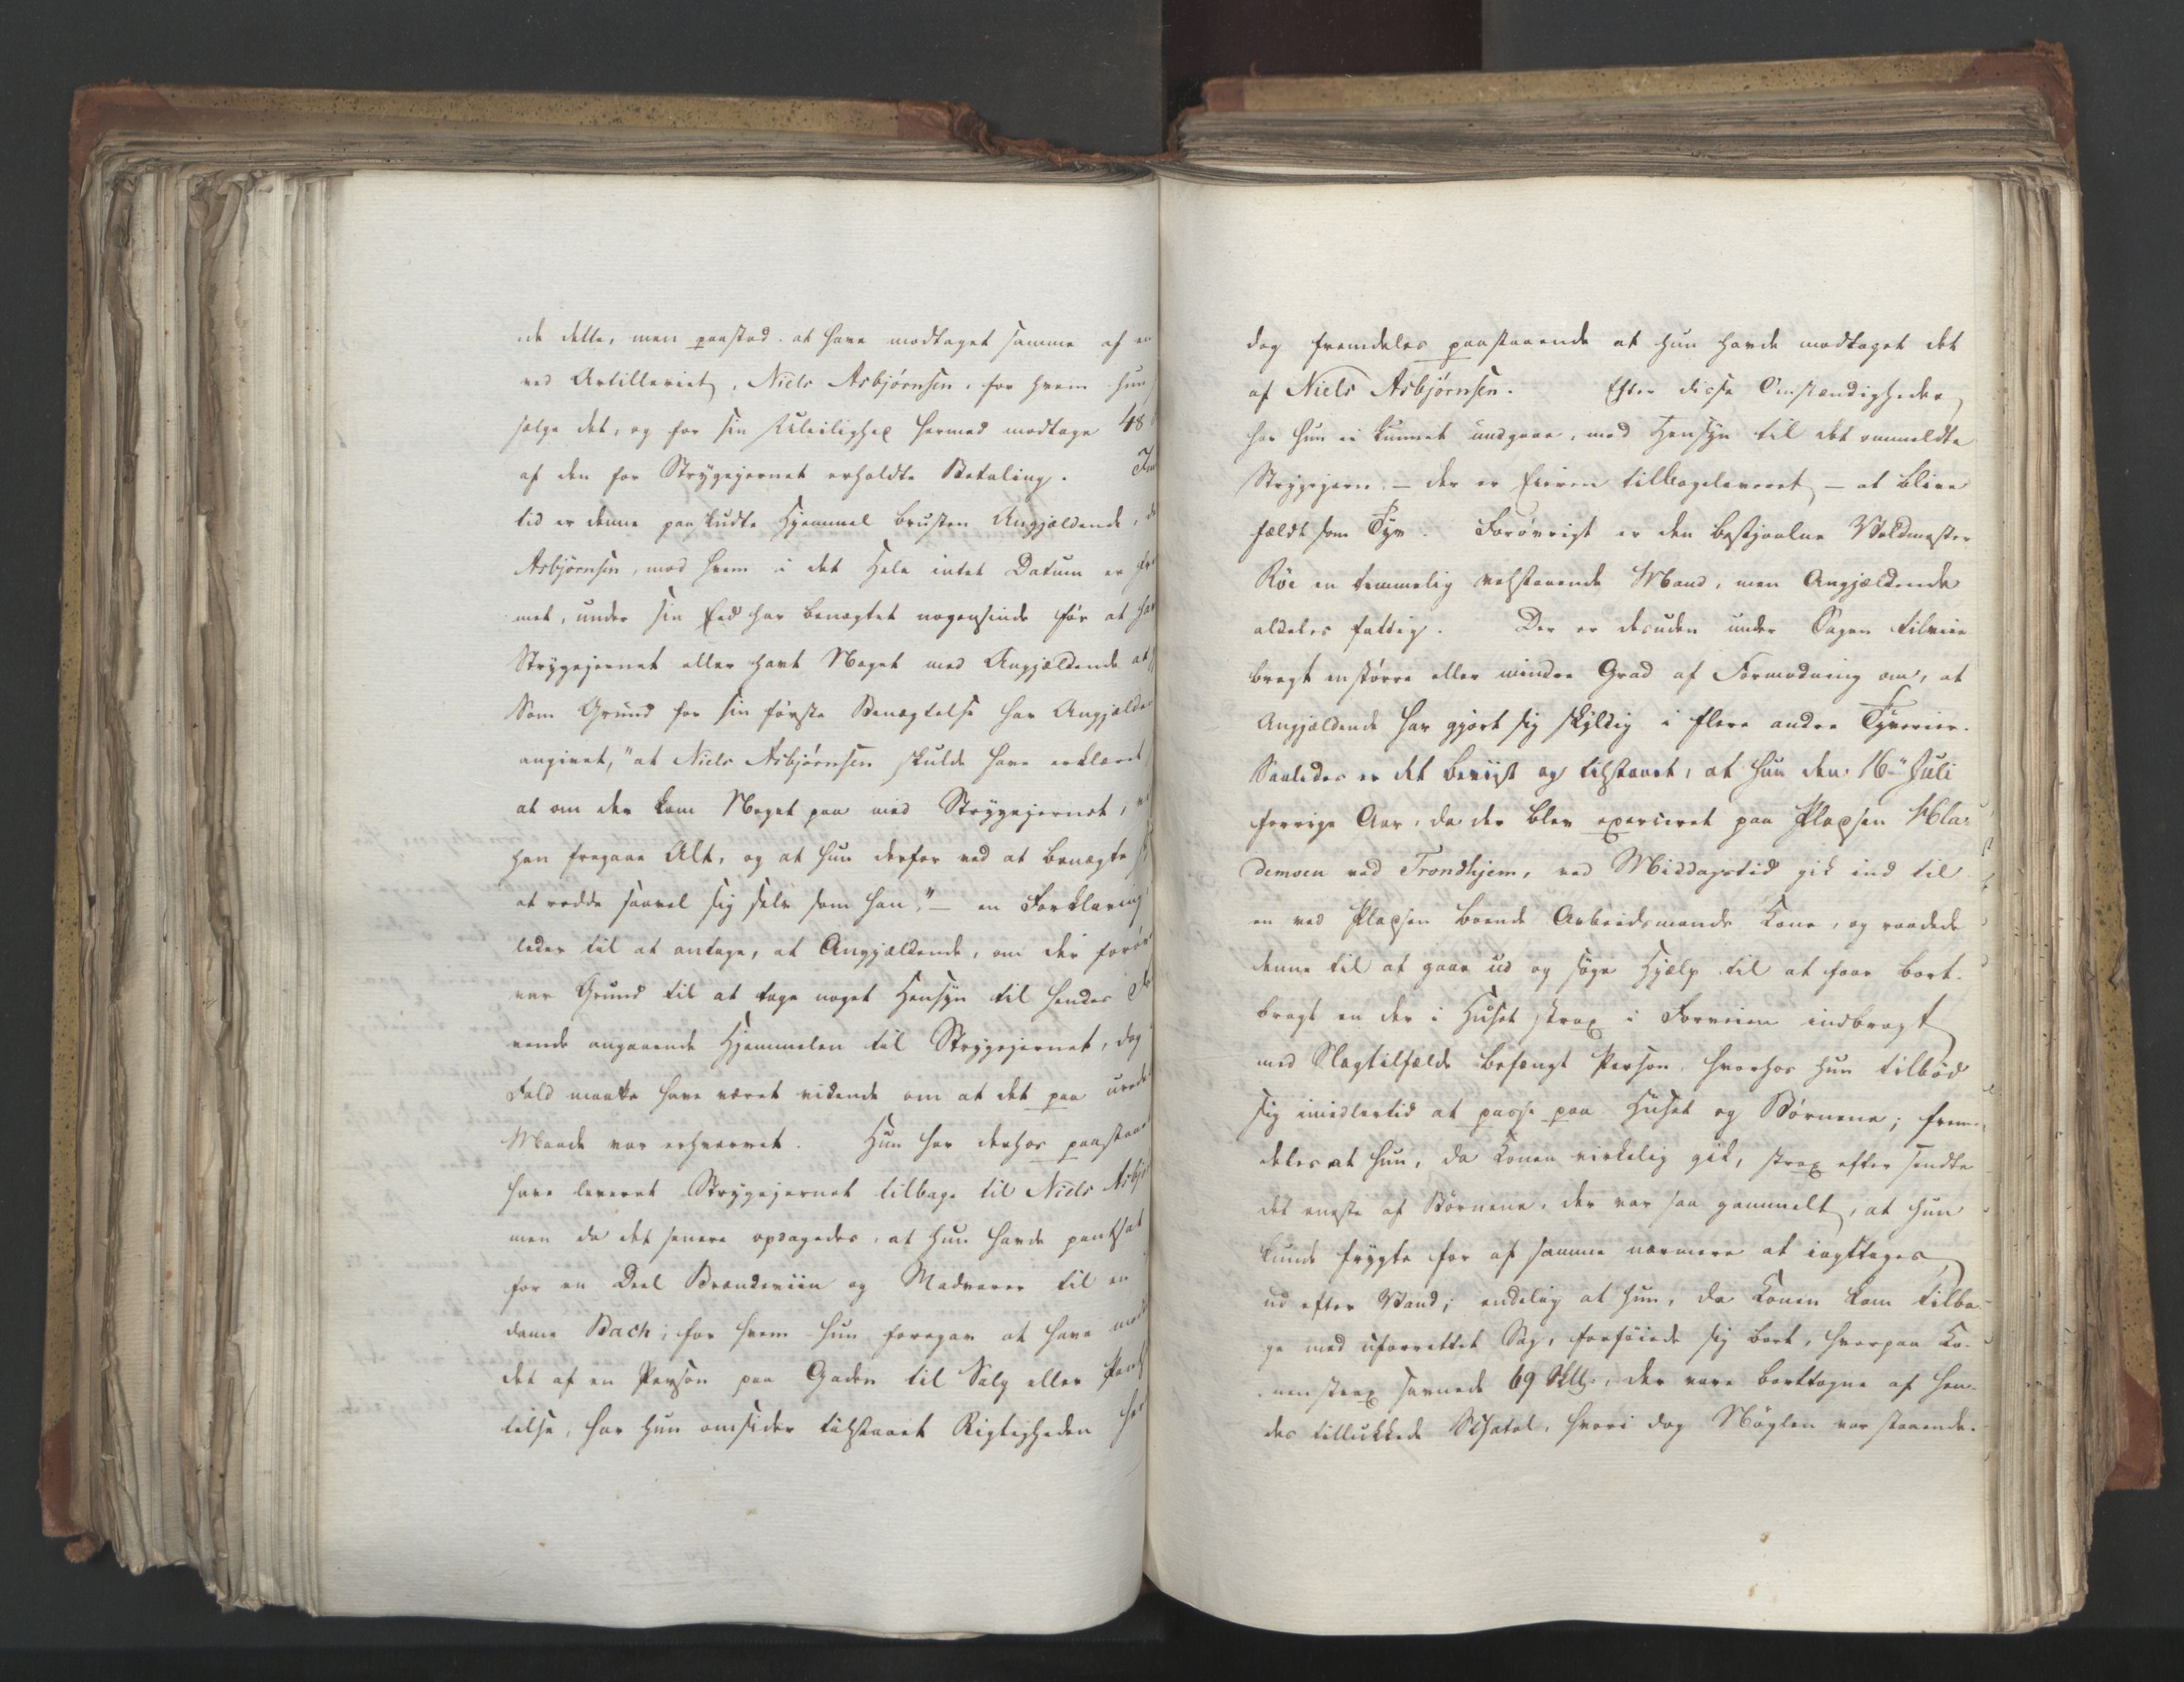 de dette, men paastod at have modtaget samme af en
ved Artilleriet, Niels Asbjørnsen, for hvem hun
sælge det, og for sin Uleilighed hermed modtage 48
af den for Strygejernet erholdte Betaling.
tid er denne paaskudte Hjemmel brusten Angjældende,
Asbjørnsen, mod hvem i det Hele intet Datum er
met, under sin Eed har benægtet nogensinde før at
Strygejernet eller havt Noget med Angjældende at
Som Grund for sin første Benægtelse har Angjælde
angivet, "at Niels Asbjørnsen skulde have erklæret
at om der kom Noget paa med Strygejernet,
han fragaae Alt, og at hun derfor ved at benægte
at redde saavel sig selv som han," — en Forklaring
leder til at antage, at Angjældende, om der forøv
var Grund til at tage noget Hensyn til hendes
vende angaaende Hjemmelen til Strygejernet, dog
Fald maatte have været vidende om at det paa urede
Maade var erhvervet. Hun har derhos paastaa
have leveret Strygejernet tilbage til Niels Asbjø
men da det senere opdagedes, at hun havde pantsat
for en Deel Brændeviin og Madvarer til en
dame Bach; for hvem hun foregav at have
det af en Person paa Gaden til Salg eller Pants
telse, har hun omsider tilstaaet Rigtigheden
dog fremdeles paastaaende at hun havde modtaget det
af Niels Asbjørnsen. Efter disse Omstændigheder
har hun ei kunnet undgaae, med Hensyn til det ommeldte
Strygejern — der er Eieren tilbageleveret — at blive
fældt som Tyv. Forøvrigt er den bestjaalne Voldmester
Röe en temmelig velstaaende Mand, men Angjældende
aldeles fattig. Der er desuden under Sagen tilveie
bragt en større eller mindre Grad af Formodning om, at
Angjældende har gjort sig skyldig i flere andre Tyverier.
Saaledes er det beviist og tilstaaet, at hun den 16de Juli
forrige Aar, da der blev exerceret paa Pladsen Hla-
demoen ved Trondhjem, ved Middagstid gik ind til
en ved Pladsen boende Arbeidsmands Kone, og raadede
denne til at gaae ud og søge Hjælp til at faae bort-
bragt en der i Huset strax i Forveien indbragt
med Slagtilfælde befængt Person, hvorhos hun tilbød
sig imidlertid at passe paa Huset og Børnene; frem-
deles at hun, da Konen virkelig gik, strax efter sendte
det eneste af Børnene, der var saa gammelt, at hun
kunde frygte for af samme nærmere at iagttages
ud efter Vand; endelig at hun, da Konen kom tilba-
ge med uforrettet Sag, forføiede sig bort, hvorpaa Ko-
nen strax savnede 69 Skll., der vare borttagne af hen-
des tillukkede Schatol, hvori dog Nøglen var staaende.